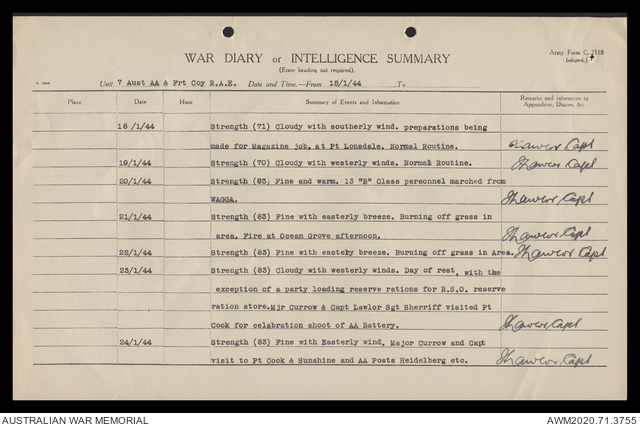 Army Form C. 2118
(adapted.)
WAR DIARY or INTELLIGENCE SUMMARY
(Erase heading not required).
Unit 7 Aust AA & Frt Coy R.A.E. Date and Time.—From 18/1/44 To
Place Date Hour Summary of Events and Information Remarks and references to Appendices, Diaries, &c.
18/1/44 Strength (71) Cloudy with southerly wind. preparations being
made for Magazine job, at Pt Lonsdale. Normal Routine. Capt
19/1/44 Strength (70) Cloudy with westerly winds. Normal Routine. Capt
20/1/44 Strength (83) Fine and warm. 13 "B" Class personnel marched from
WAGGA. Capt
21/1/44 Strength (83) Fine with easterly breeze. Burning off grass in
area. Fire at Ocean Grove afternoon. Capt
22/1/44 Strength (83) Fine with easterly breeze. Burning off grass in Area. Capt
23/1/44 Strength (83) Cloudy with westerly winds. Day of rest, with the
exception of a party loading reserve rations for R.S.O. reserve
ration store. Mjr Currow & Capt Lawlor Sgt Sherriff visited Pt
Cook for celabration shoot of AA Battery. Capt
24/1/44 Strength (83) Fine with Easterly wind, Major Currow and Capt
visit to Pt Cook & Sunshine and AA Posts Heidelberg etc. Capt
AUSTRALIAN WAR MEMORIAL AWM2020.71.3755